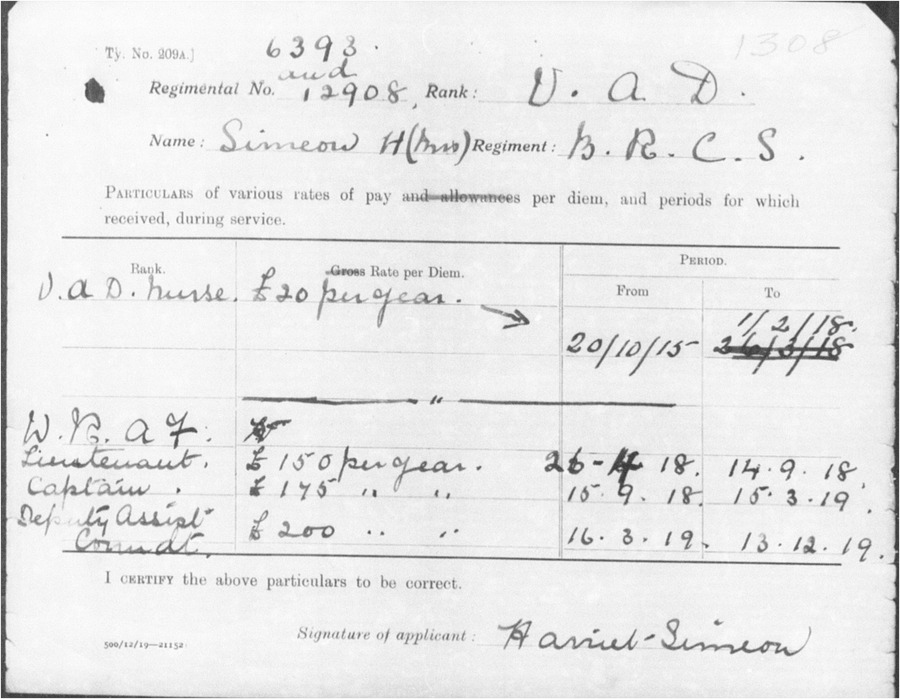 1308
Ty. No. 209A.]
6393.
and
Regimental No. 12908, Rank: V. A. D.
Name: Simeon H (Mrs) Regiment: B. R. C. S.
PARTICULARS of various rates of pay and allowances per diem, and periods for which
received, during service.
Rank. Gross Rate per Diem. PERIOD.
From To
V.A.D. Nurse. £20 per year.
1/2/18.
20/10/15 26/3/18
"
W. R. A F.
Lieutenant. £150 per year. 26-4 18. 14.9.18.
Captain. £175 " " 15.9.18. 15.3.19.
Deputy Assist
Comdt. £200 " " 16.3.19. 13.12.19.
I CERTIFY the above particulars to be correct.
Signature of applicant: Harriet Simeon
500/12/19—21152